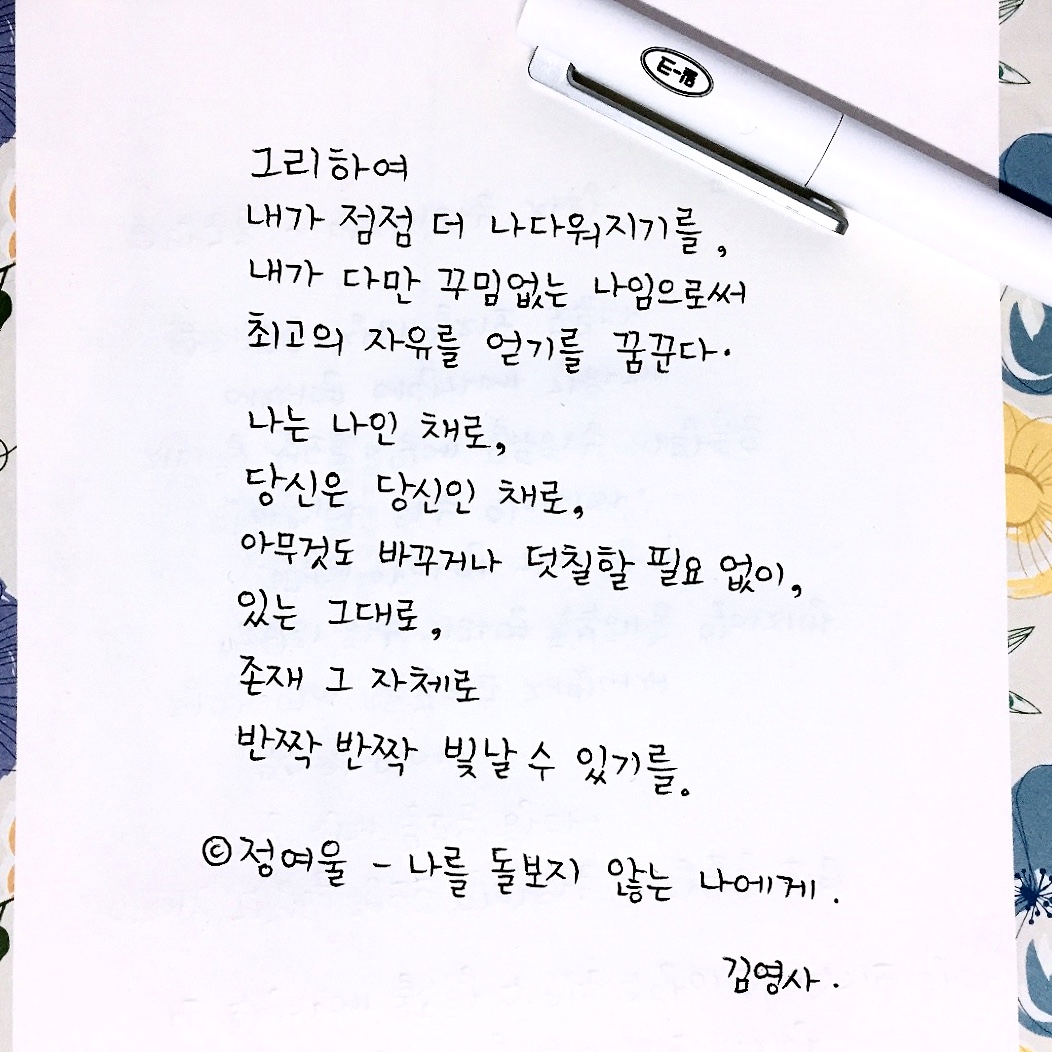 그리하여
내가 점점 더 나다워지기를,
내가 다만 꾸밈없는 나임으로써
최고의 자유를 얻기를 꿈꾼다.
나는 나인 채로,
당신은 당신인 채로,
아무것도 바꾸거나 덧칠할 필요 없이,
있는 그대로,
존재 그 자체로
반짝 반짝 빛날 수 있기를.
©정여울 - 나를 돌보지 않는 나에게.
김영사.